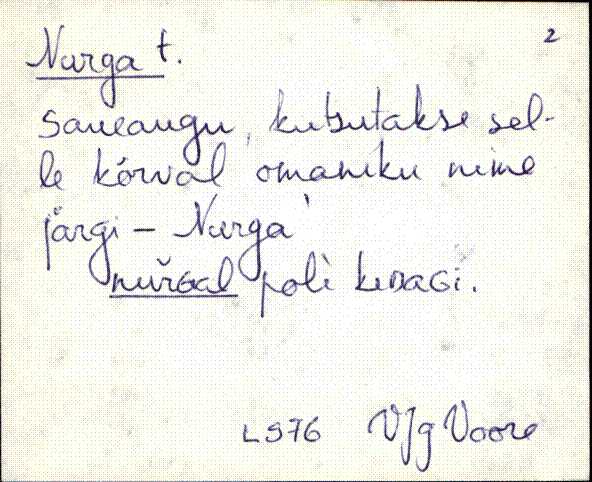 2
Nurga t.
saueaugu, kutsutakse sel-
le kõrval omaniku nime
järgi – Nurga
nurGal poĺè keDaGi.
LS76 VJg Voore